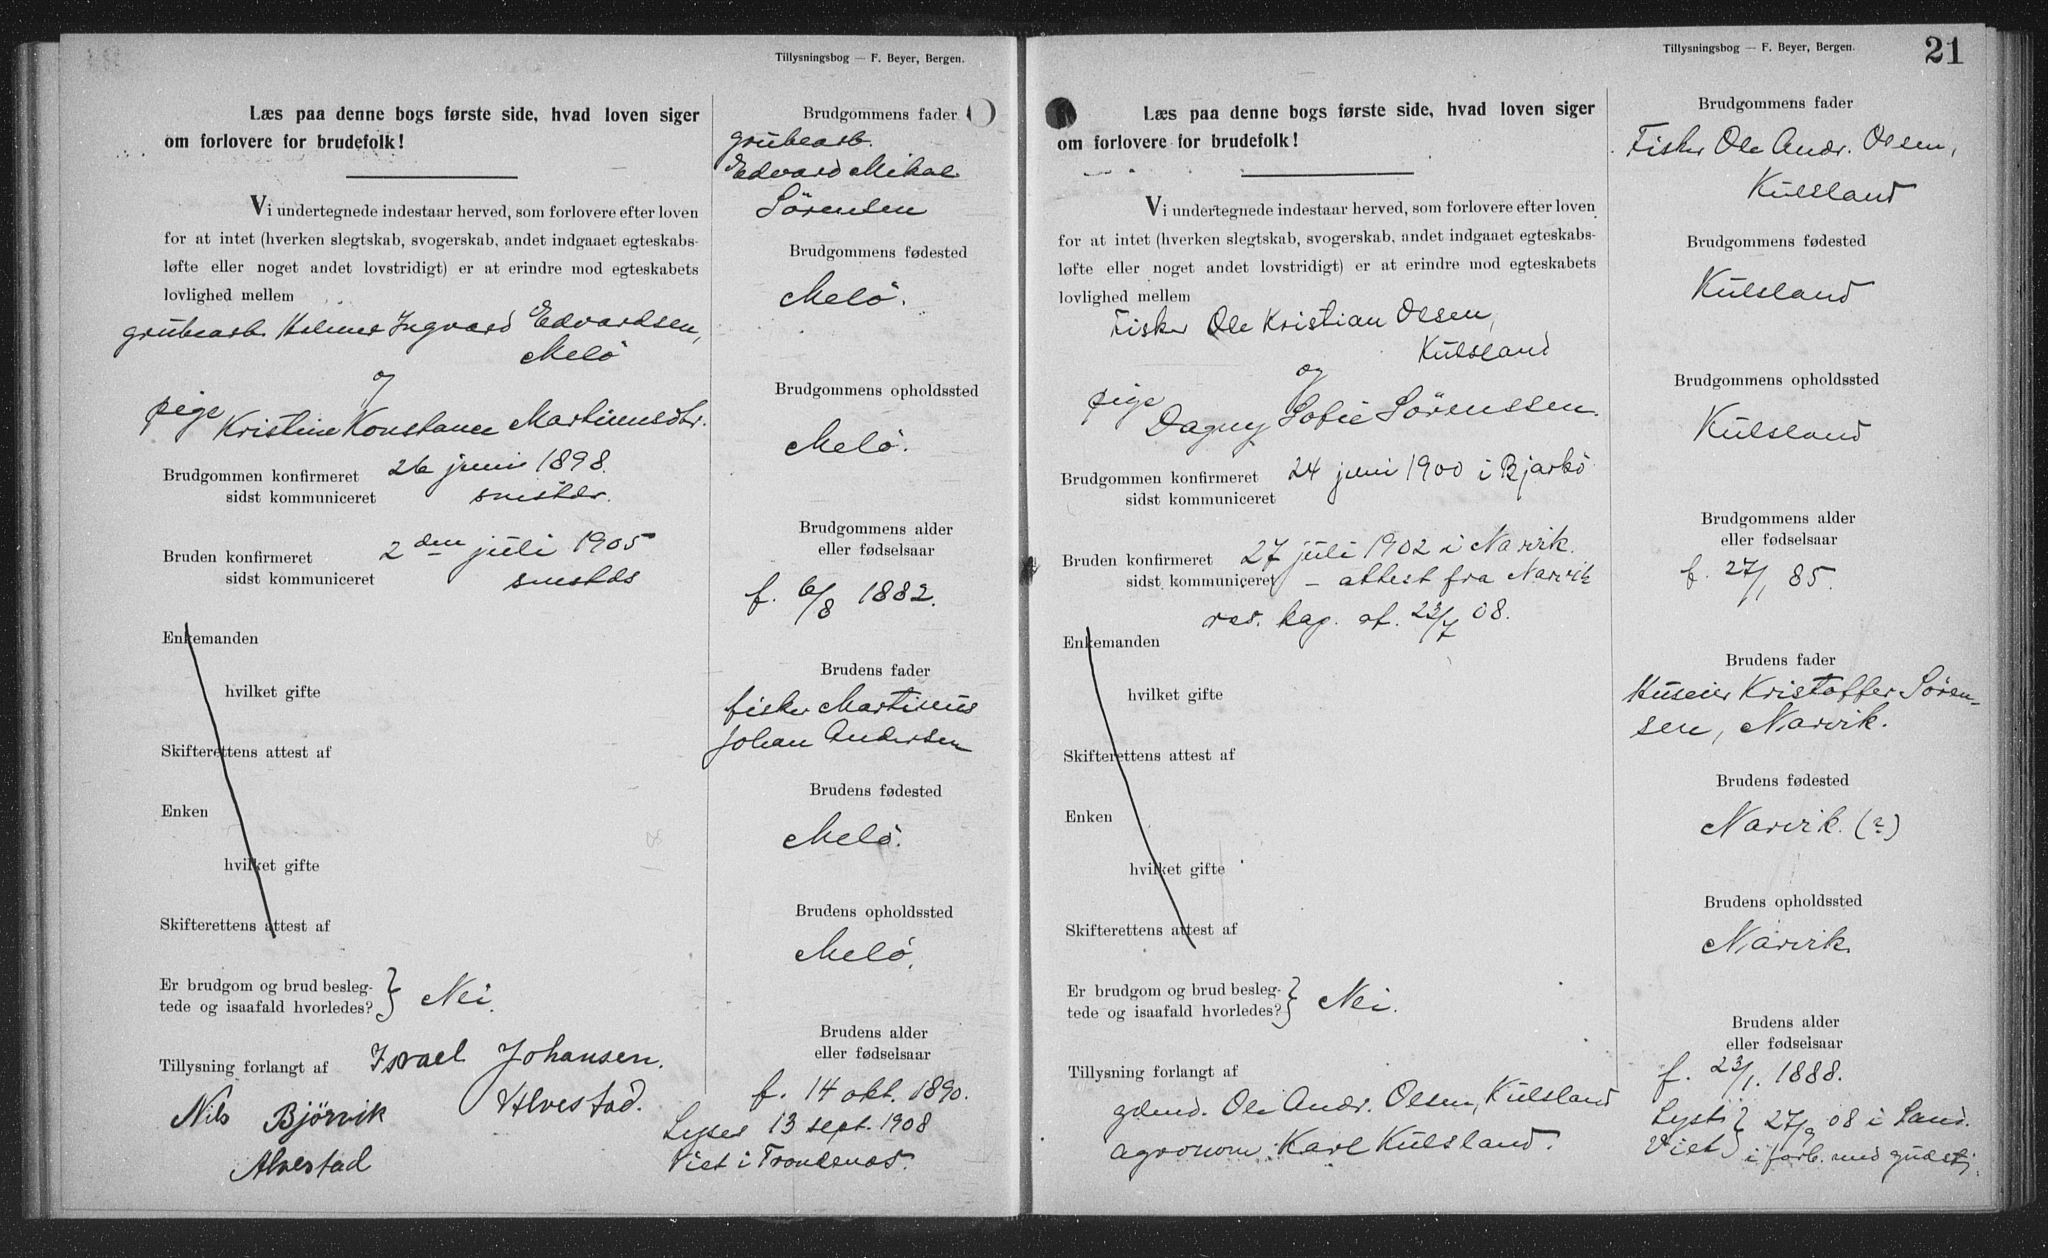 Tillysningsbog — F. Beyer, Bergen.
Læs paa denne bogs første side, hvad loven siger
om forlovere for brudefolk!
Vi undertegnede indestaar herved, som forlovere efter loven
for at intet (hverken slegtskab, svogerskab, andet indgaaet egteskabs-
løfte eller noget andet lovstridigt) er at erindre mod egteskabets
lovlighed mellem
grubearb. Helmer Ingvard Edvardsen,
Melö
og
pige Kristine Konstance Martinusdtr.
Brudgommen konfirmeret 26 juni 1898.
sidst kommuniceret
Bruden konfirmeret 2den juli 1905
sidst kommuniceret
Enkemanden
hvilket gifte
Skifterettens attest af
Enken
hvilket gifte
Skifterettens attest af
Er brudgom og brud besleg-
tede og isaafald hvorledes? } Nei.
Tillysning forlangt af Israel Johansen.
Alvestad.
Nils Björvik
Alvestad
Brudgommens fader
grubearb.
Edvard Mikal
Sörensen
Brudgommens fødested
Melö.
Brudgommens opholdssted
Melö.
Brudgommens alder
eller fødselsaar
f. 6/8 1882.
Brudens fader
fisker Martinus
Johan Andersen
Brudens fødested
Melö.
Brudens opholdssted
Melö.
Brudens alder
eller fødselsaar
f. 14 okt. 1890.
Lyses 13 sept. 1908
Viet i Trondenæs.
Tillysningsbog — F. Beyer, Bergen.
21
Læs paa denne bogs første side, hvad loven siger
om forlovere for brudefolk!
Vi undertegnede indestaar herved, som forlovere efter loven
for at intet (hverken slegtskab, svogerskab, andet indgaaet egteskabs-
løfte eller noget andet lovstridigt) er at erindre mod egteskabets
lovlighed mellem
Fisker Ole Kristian Olsen,
Kulsland
og
pige Dagny Sofie Sörenssen.
Brudgommen konfirmeret 24 juni 1900 i Bjarkö
sidst kommuniceret
Bruden konfirmeret 27 juli 1902 i Narvik.
sidst kommuniceret – attest fra Narvik
res. kap. af. 23/7 08.
Enkemanden
hvilket gifte
Skifterettens attest af
Enken
hvilket gifte
Skifterettens attest af
Er brudgom og brud besleg-
tede og isaafald hvorledes? } Nei.
Tillysning forlangt af
gdmd. Ole Andr. Olsen, Kulsland
agronom Karl Kulsland.
Brudgommens fader
Fisker Ole Andr. Olsen,
Kulsland
Brudgommens fødested
Kulsland
Brudgommens opholdssted
Kulsland
Brudgommens alder
eller fødselsaar
f. 27/1 85.
Brudens fader
Huseier Kristoffer Sören-
sen, Narvik.
Brudens fødested
Narvik. (?)
Brudens opholdssted
Narvik.
Brudens alder
eller fødselsaar
f. 23/1. 1888.
Lyst } 27/9 08 i Sand.
Viet } i forb. med gudstj.